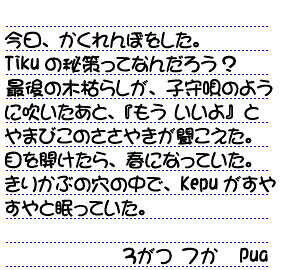 今日、かくれんぼをした。
Tiku の秘策ってなんだろう？
最後の木枯らしが、子守唄のよう
に吹いたあと、『もう いいよ』と
やまびこのささやきが聞こえた。
目を開けたら、春になっていた。
きりかぶの穴の中で、Kepu がすや
すやと眠っていた。
3がつ つか Pua